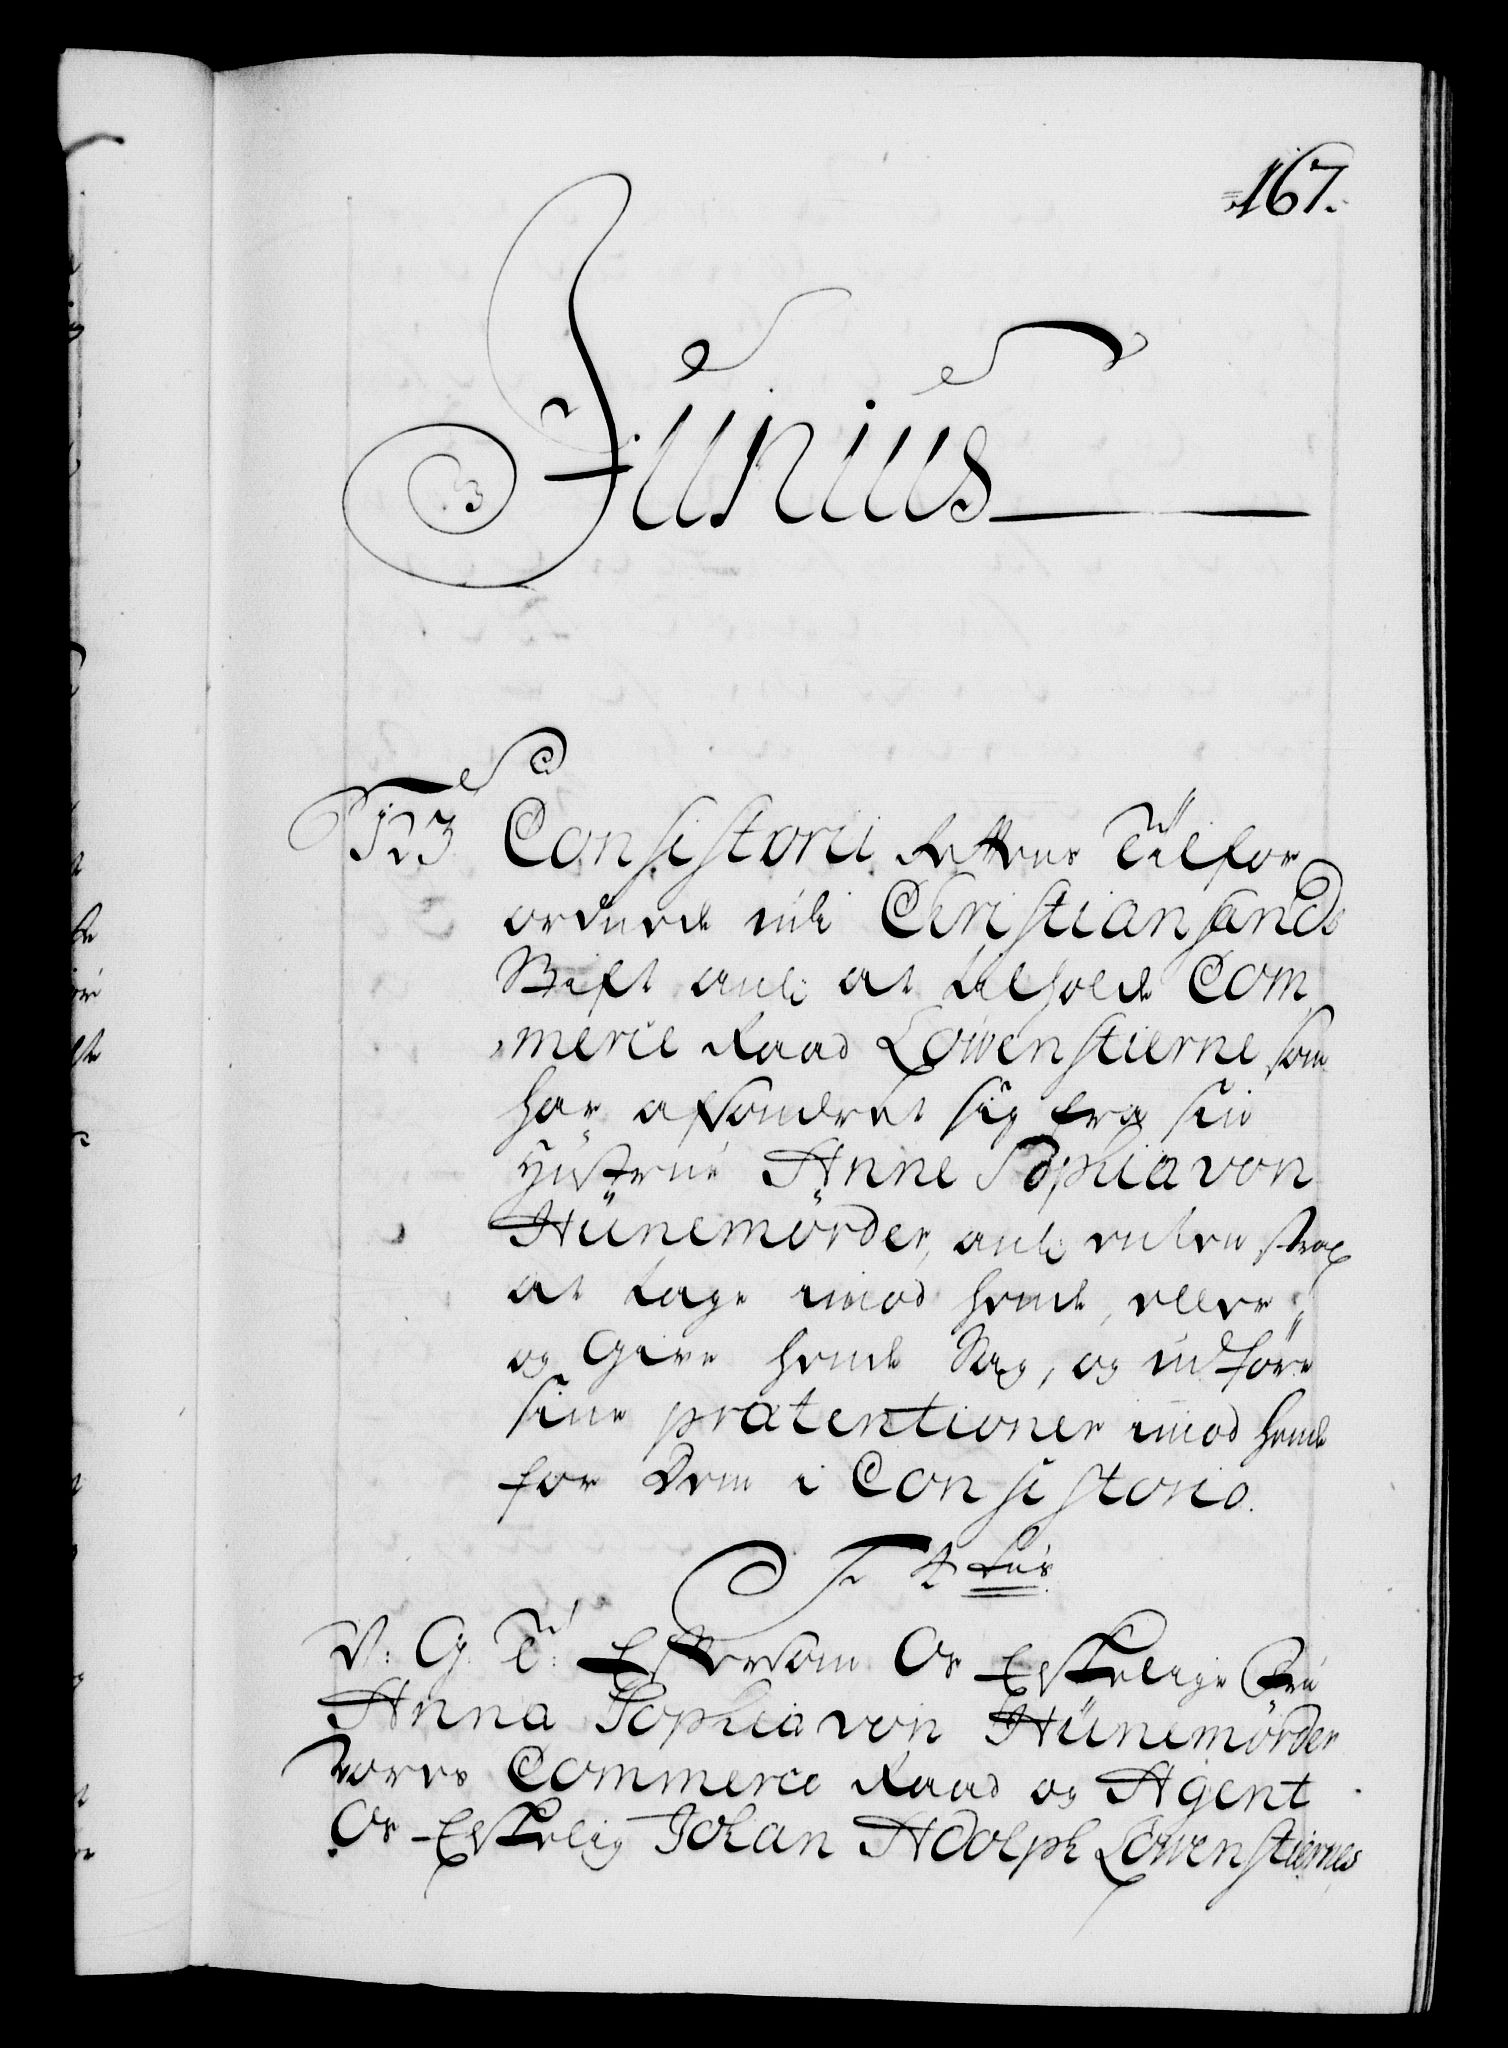 167.
Junius
123
Consistorii Rettens Tilfor
ordnede udi Christiansands
Stift anl: at tilholde Com
merce Raad Löwenstierne som
har afsondret sig fra sin
Hustrue Anne Sophia von
Hünemörder, anl: enten strax
at tage imod hende, eller
og Give hende Sag, og udføre
sine prætentioner imod hende
for Dem i Consistorio.
V: G. T: Eftersom Os Elskelige Fru
Anna Sophia von Hünemörder
Vores Commerce Raad og Agent
Os Elskelig Johan Adolph Löwenstiernes